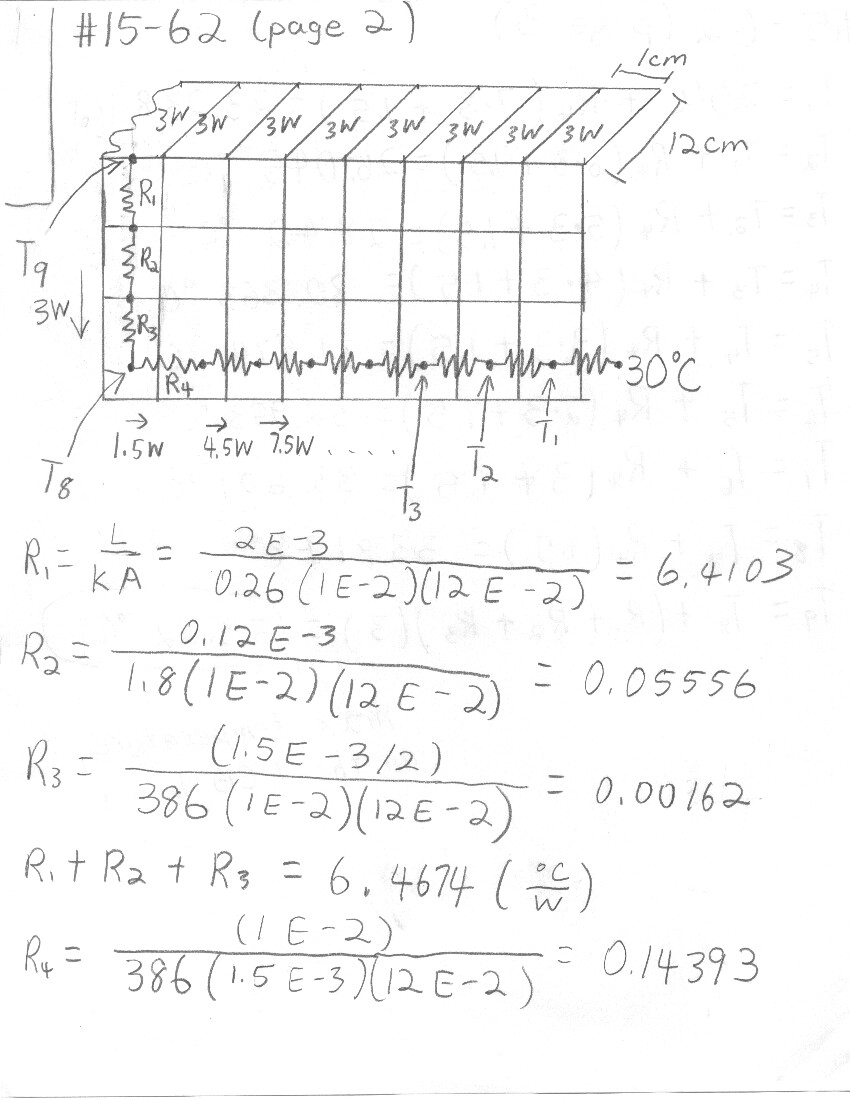 #15-62 (page 2)
1cm
3W 3W 3W 3W 3W 3W 3W 3W
12cm
R₁
T₉
R₂
3W
R₃
30°C
R₄
1.5W 4.5W 7.5W . . . . .
T₁
T₂
T₈
T₃
R₁ = L/kA = 2E-3/0.26(1E-2)(12E-2) = 6.4103
R₂ = 0.12E-3/1.8(1E-2)(12E-2) = 0.05556
R₃ = (1.5E-3/2)/386(1E-2)(12E-2) = 0.00162
R₁ + R₂ + R₃ = 6.4674 (°C/W)
R₄ = (1E-2)/386(1.5E-3)(12E-2) = 0.14393